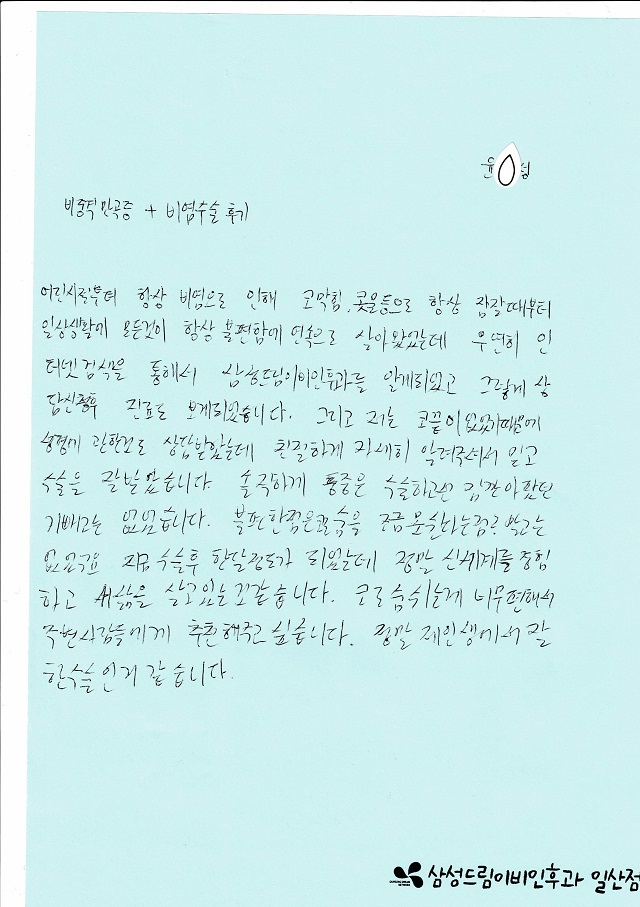 윤 성
비중격만곡증 + 비염수술 후기
어린시절부터 항상 비염으로 인해 코막힘, 콧물등으로 항상 잠잘때부터
일상생활에 모든것이 항상 불편함에 연속으로 살아왔었는데 우연히 인
터넷검색을 통해서 삼성드림이비인후과를 알게되었고 그렇게 상
담신청후 진료도 보게되었습니다. 그리고 저는 코끝이 없었기때문에
성형에 관한것도 상담받았는데 친절하게 자세히 알려주셔서 믿고
수술을 잘받았습니다. 솔직하게 통증은 수술하고선 잠깐아팠던
기빼고는 없었습니다. 불편한점은코숨을 조금못쉰다는점? 빡는
없었구요 지금 수술후 한달정도가 되었는데 정말 신세계를 경험
하고 새삶을 살고있는것같습니다. 코로숨쉬는게 너무편해서
주변사람들에게 추천해주고 싶습니다. 정말 제인생에서 잘
한수술인거 같습니다.
삼성드림이비인후과 일산점